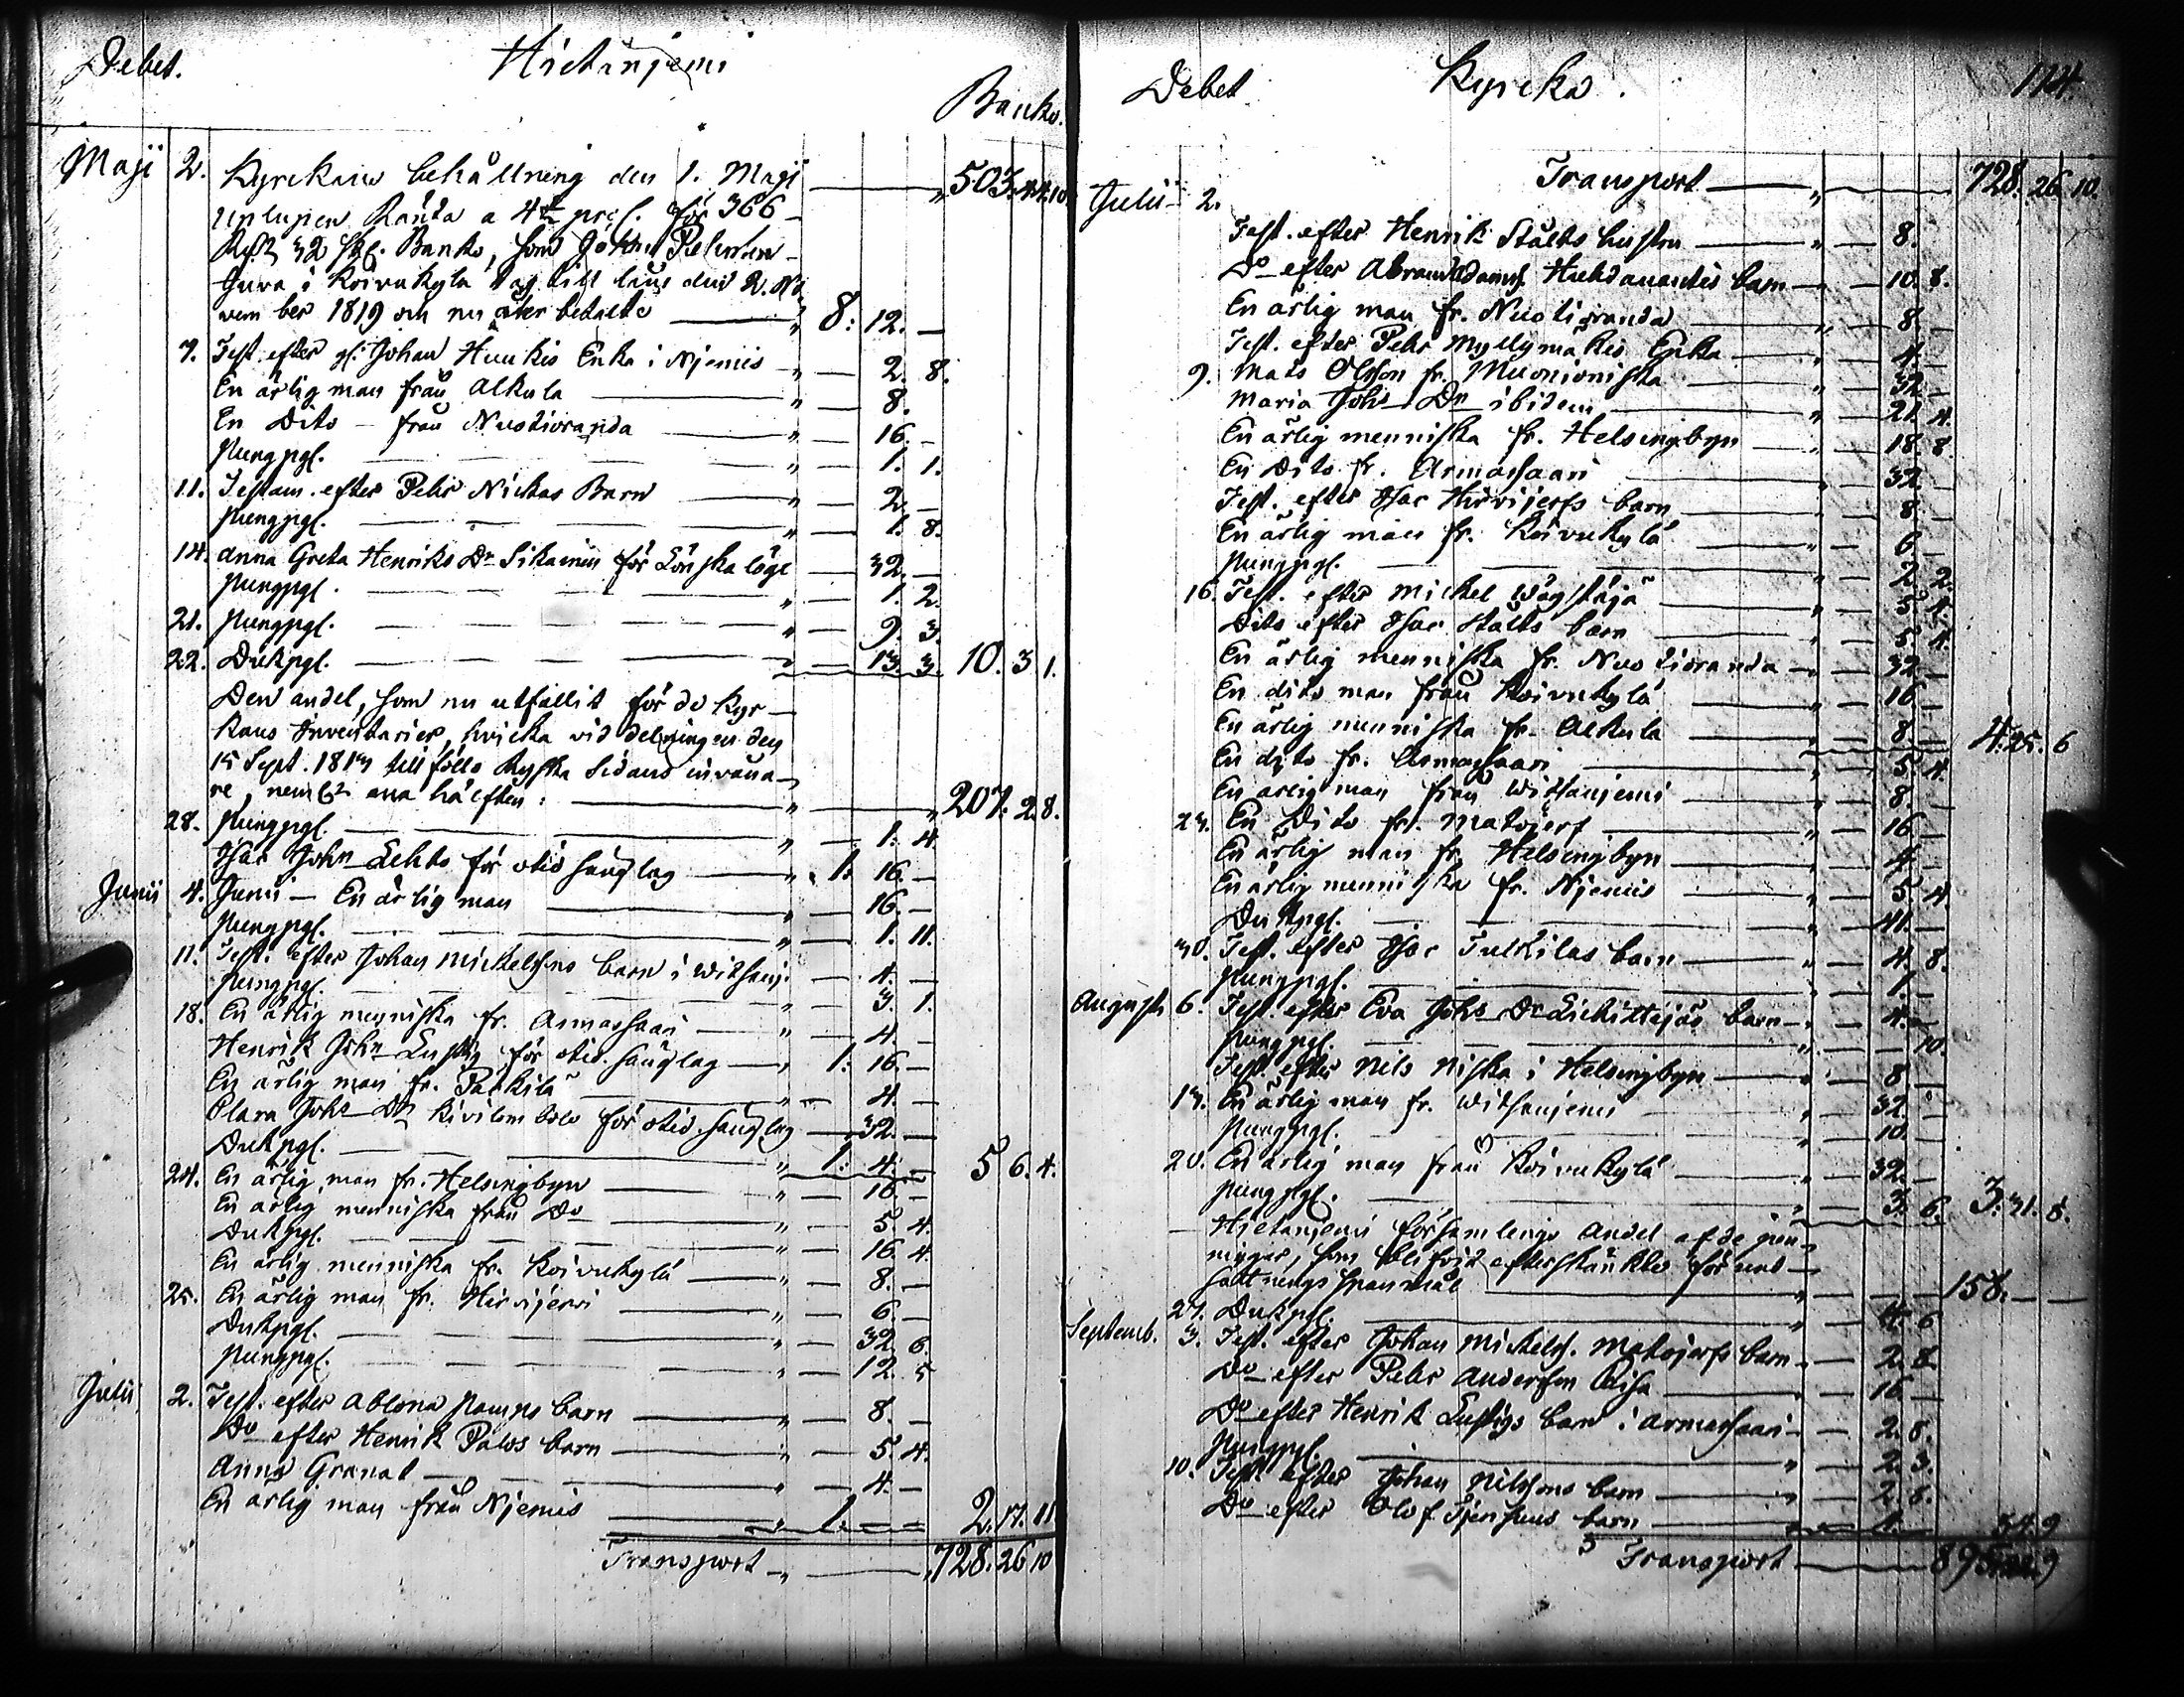 Debet. Hietaniemi
Banko.
Maji 2. Kyrckans behållning den 1. Maji — 503. 44. 10.
uplupen Ränta a 4 pr Ct. för 366
Rd. 32 sk. Banko, som Johan Pelwinen
Juva i Koivukylä tag till låns den 2. No-
vember 1819 och nu åter betalte — 8: 12. —
7. Test. efter gl. Johan Huukis Enka i Njemis — 2. 8.
En ärlig man från Alkula — 8.
En Dito — från Nuotioranda — 16. —
Pungpgr. — 1. 1.
11. Testam. efter Pehr Nickas Barn — 2. —
Pungpgr. — 1. 8.
14. Anna Greta Henriks Dr Sikainen för Lönskaläge — 32. —
Pungpgr. — 1. 2.
21. Pungpgr. — 9. 3.
22. Dukpgr. — 13. 3. 10. 3 1.
Den andel, som nu utfallit för de Kyr-
kans Inventarier, hvilka vid delningen den
15 Sept. 1813 tillföllo Ryska Sidans invåna-
re, neml. ena hälften: — 207. 2. 8.
28. Pungpgr. — 1. 4
Isac Johns Lehto för otid. sänglag — 1: 16. —
Junii 4. Junii — En ärlig man — 16. —
Pungpgr. — 1. 11.
11. Test. efter Johan Mickelssons barn i Witsanj. — 4. —
Pungpgr. — 3. 1.
18. En ärlig menniska fr. Armassaari — 4. —
Henrik Johns Lustig för otid. sänglag — 1: 16. —
En ärlig man fr. Päckilä — 4. —
Clara Johs Dr Kivilombolo för otid. sänglag — 32. —
Dukpgr. — 1: 4. — 5 6. 4.
24. En ärlig man fr. Helsingbyn — 16. —
En ärlig menniska från Do — 5. 4.
Dukpgr. — 16. 4.
En ärlig menniska fr. Koivukylä — 8. —
25. En ärlig man fr. Hirvijervi — 6. —
Dukpgr. — 32. 6.
Pungpgr. — 12. 5
Julii 2. Test. efter Ablona Pamps barn — 8. —
Do efter Henrik Palos barn — 5. 4.
Anna Granat — 4. —
En ärlig man från Njemis — 1. — — 2. 17. 11
Transport — 728. 26 10
Debet Kyrcka. 114.
Transport — 728. 26 10.
Julii 2.
Test. efter Henrik Stålts hustru — 8.
Do efter Abram Adams. Huhdanantis barn — 10. 8.
En ärlig man fr. Nuotioranda — 8. —
Test. efter Pehr Myllymäkis Enka — 4. —
9. Mats Olsson fr. Muonioniska — 32 —
Maria Johs Dr ibidem — 21. 4.
En ärlig menniska fr. Helsingbyn — 18. 8
En Dito fr. Armassaari — 32 —
Test. efter Isac Hirvijerfs barn — 8 —
En ärlig man fr. Koivukylä — 6 —
Pungpgr. — 2. 2.
16. Test. efter Mickel Wägstäjä — 5. 4.
Dito efter Isac Stålts barn — 5 4.
En ärlig menniska fr. Nuotioranda — 32 —
En dito man från Koivukylä — 16 —
En ärlig menniska fr. Alkula — 8 — 4. 25. 6
En dito fr. Armassaari — 5. 4.
En ärlig man från Witsanjemi — 8. —
23. En Dito fr. Matojerf — 16 —
En ärlig man fr. Helsingbyn — 4. —
En ärlig menniska fr. Njemis — 5. 4.
Dukpgr. — 41. —
30. Test. efter Isac Tulkilas barn — 4. 8.
Pungpgr. — 1. —
Augusti 6. Test. efter Eva Johs Dr barn — 4. —
Pungpgr. — 10.
Test. efter Nils Niska i Helsingbyn — 8 —
13. En ärlig man fr. Witsanjemi — 32. —
Pungpgr. — 10. —
20. En ärlig man från Koivukylä — 32. —
Pungpgr. — 3. 6. 3. 31. 8.
Hietanjemi församlings andel af de pen-
ningar, som blifvit efterskänkte för und-
sättnings spanmål — 158. — —
27. Dukpgr. — 4. 6
Septemb. 3. Test. efter Johan Mickels. Matojerfs barn — 2. 8.
Do efter Pehr Andersson — 16 —
Do efter Henrik Lustigs barn i Armassaari — 2. 8.
Pungpgr. — 2. 3.
10. Test. efter Johan Nilssons barn — 2. 8.
Do efter Olof barn — 4. — 34. 9
Transport — 895. 9